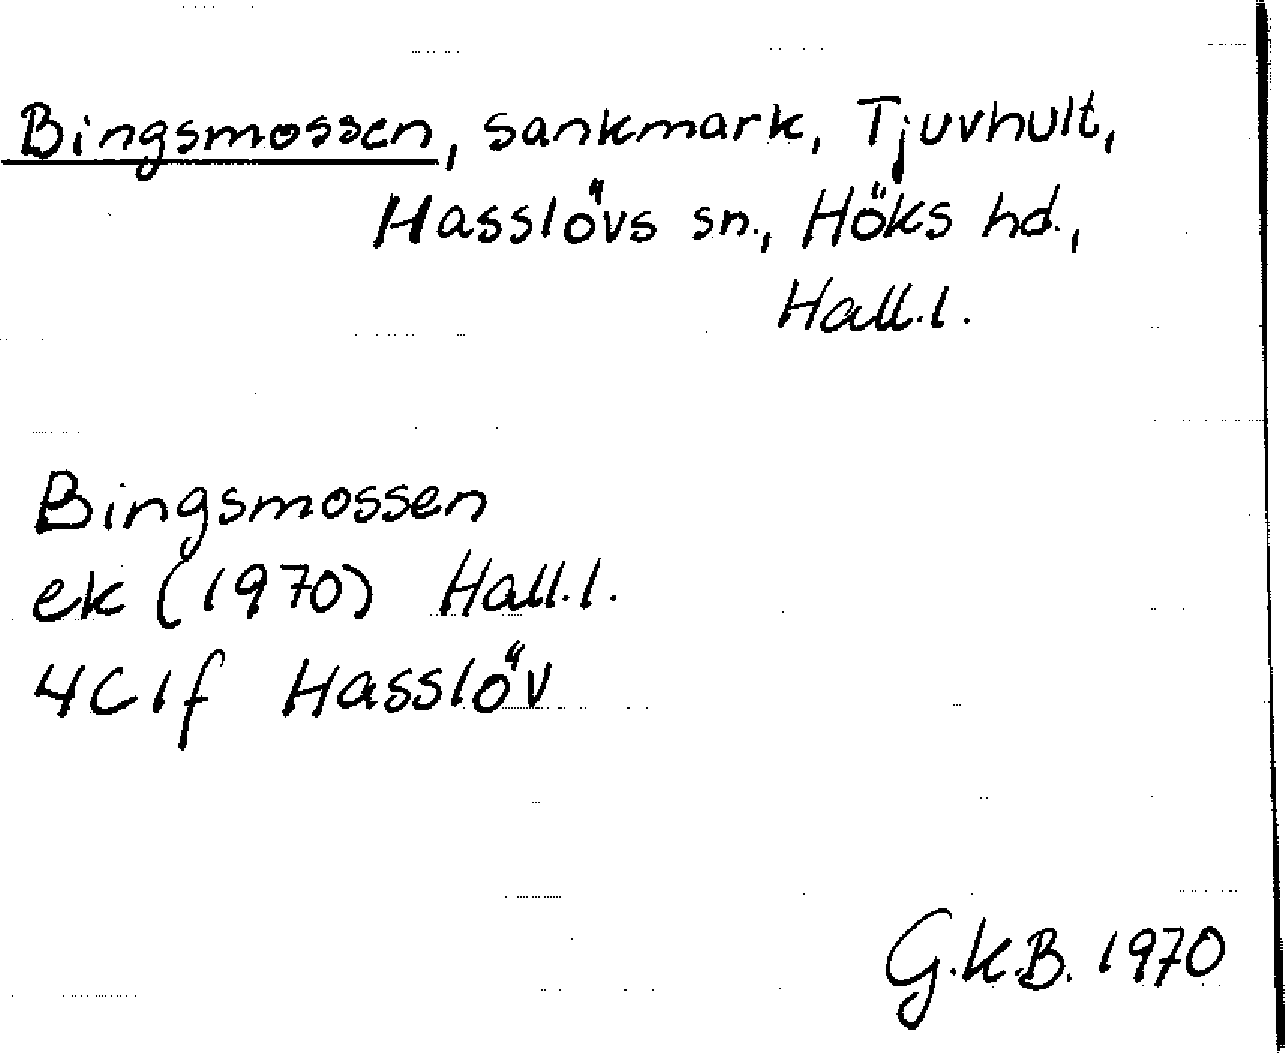 Bingsmossen, sankmark, Tjuvhult,
Hasslövs sn., Höks hd.,
Hall.l.
Bingsmossen
ek (1970) Hall.l.
4C1f Hasslöv
G.K.B. 1970